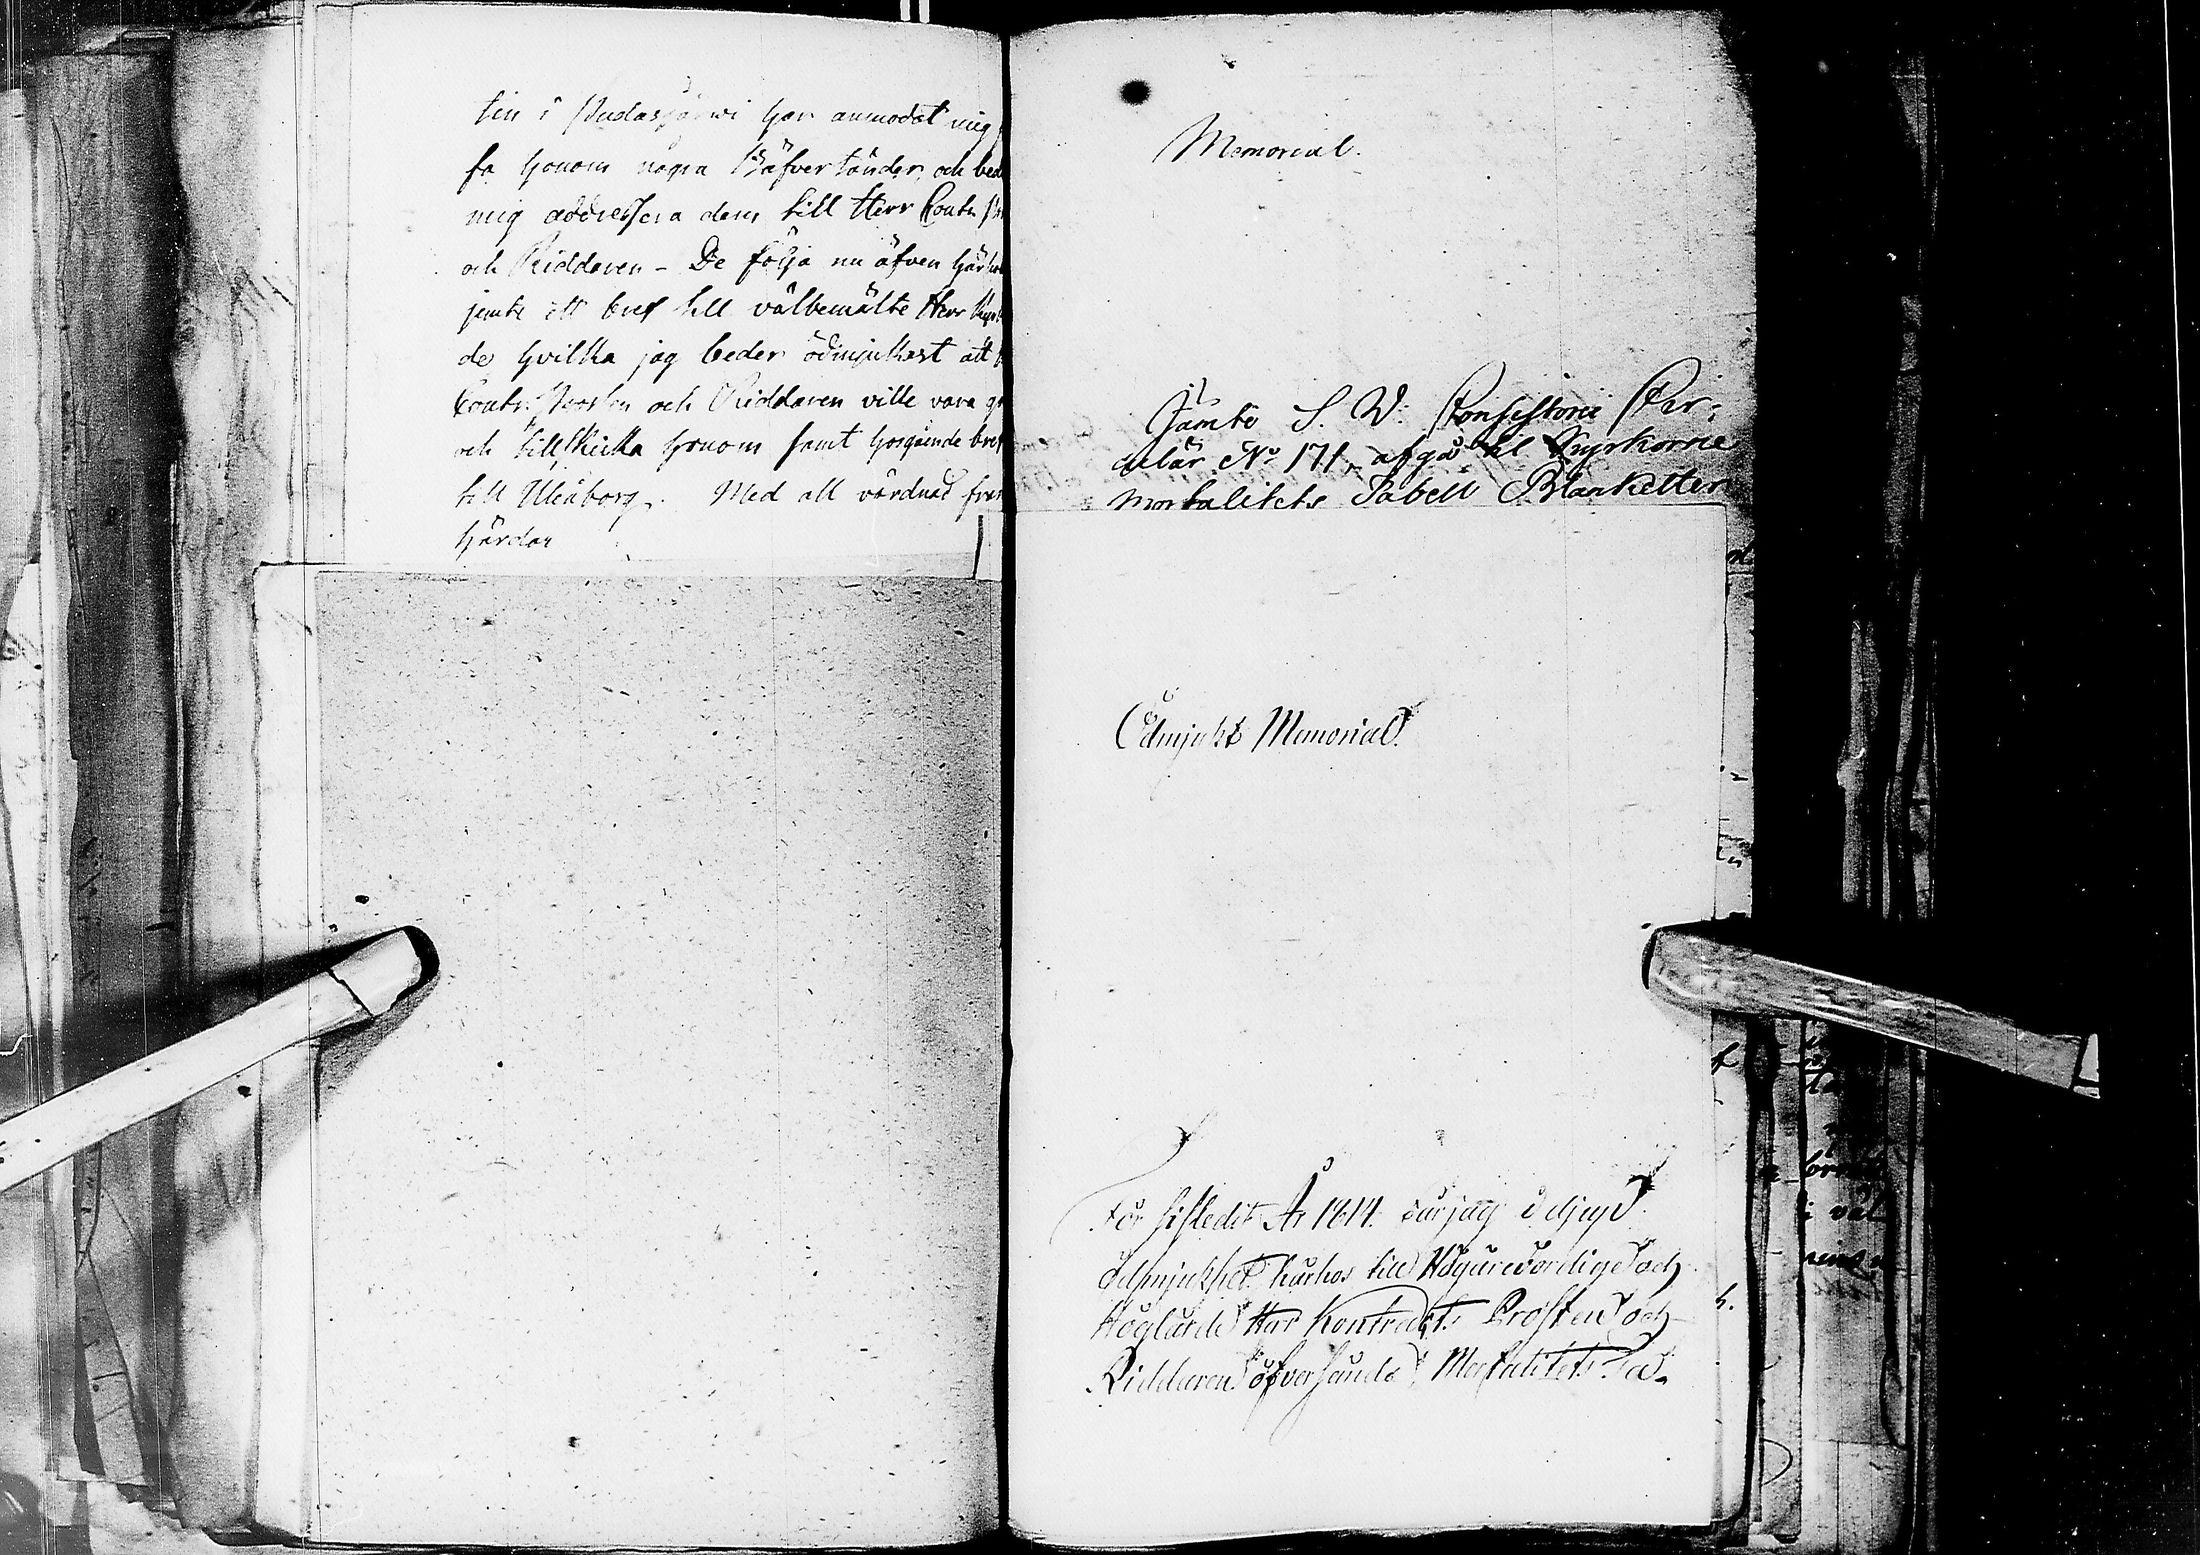 tin i Pudasjärwi har anmodat mig
få honom några Bäfvertänder, och bed
mig addressera dem till Herr Contr. Pr
och Riddaren – De följa nu äfven härho
jemte ett bref till välbemälte Herr
de hvilka jag beder ödmjukast att
Contr. Prosten och Riddaren ville vara g
och tillskicka honom samt hosgående bref
till Uleåborg. Med all vördnad fram
härdar
Memorial.
Jämte S. V. Consistorii Cir-
culär No 171, afgå til Kyrkorne
Mortalitets Tabell Blanketter
Ödmjukt Memorial.
För sistledit År 1814. får jag i djup
ödmjukhet härhos till Högärevördige och
Höglärde Herr Kontrakts Prosten och
Riddaren öfversända Mortalitets Ta-